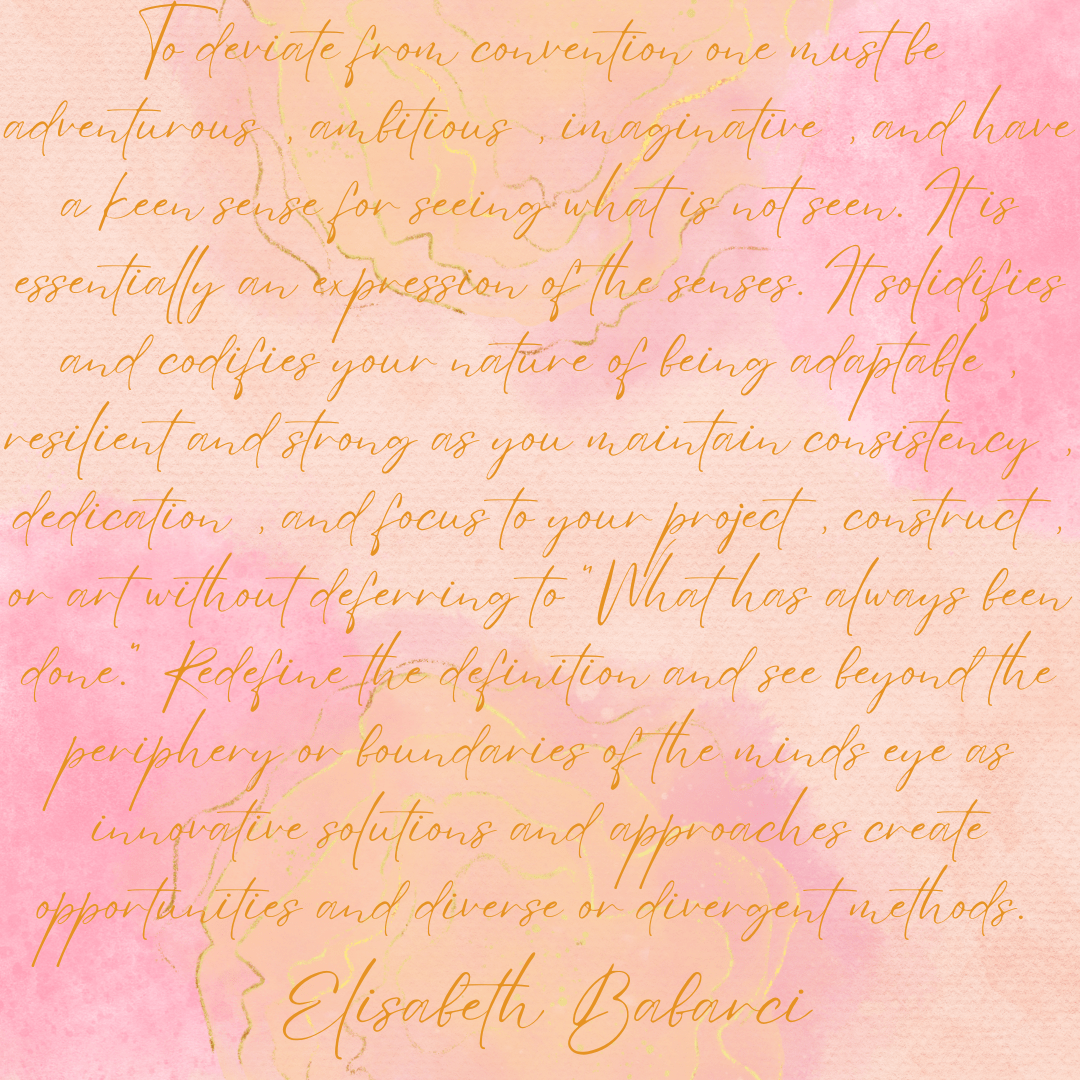 To deviate from convention one must be
adventurous , ambitious , imaginative , and have
a keen sense for seeing what is not seen. It is
essentially an expression of the senses. It solidifies
and codifies your nature of being adaptable ,
resilient and strong as you maintain consistency ,
dedication , and focus to your project , construct ,
or art without deferring to "What has always been
done." Redefine the definition and see beyond the
periphery or boundaries of the minds eye as
innovative solutions and approaches create
opportunities and diverse or divergent methods.
Elisabeth Babarci